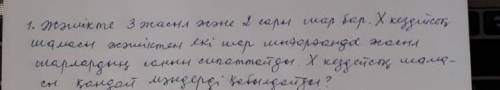 1. Жәшікте 3 жасыл және 2 сары шар бар. X кездейсоқ
шамасы жәшіктен екі шар шығарғанда жасыл
шарлардың санын сипаттайды. X кездейсоқ шама-
сы қандай мәндерді қабылдайды?